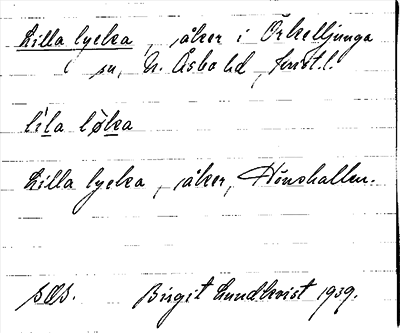 Lilla lycka, åker i Örkelljunga
sn, N. Åsbo hd, Krist. l.
lìla lø̀ka
Lilla lycka, åker, Hönshallen.
SOS. Birgit Lundkvist 1939.